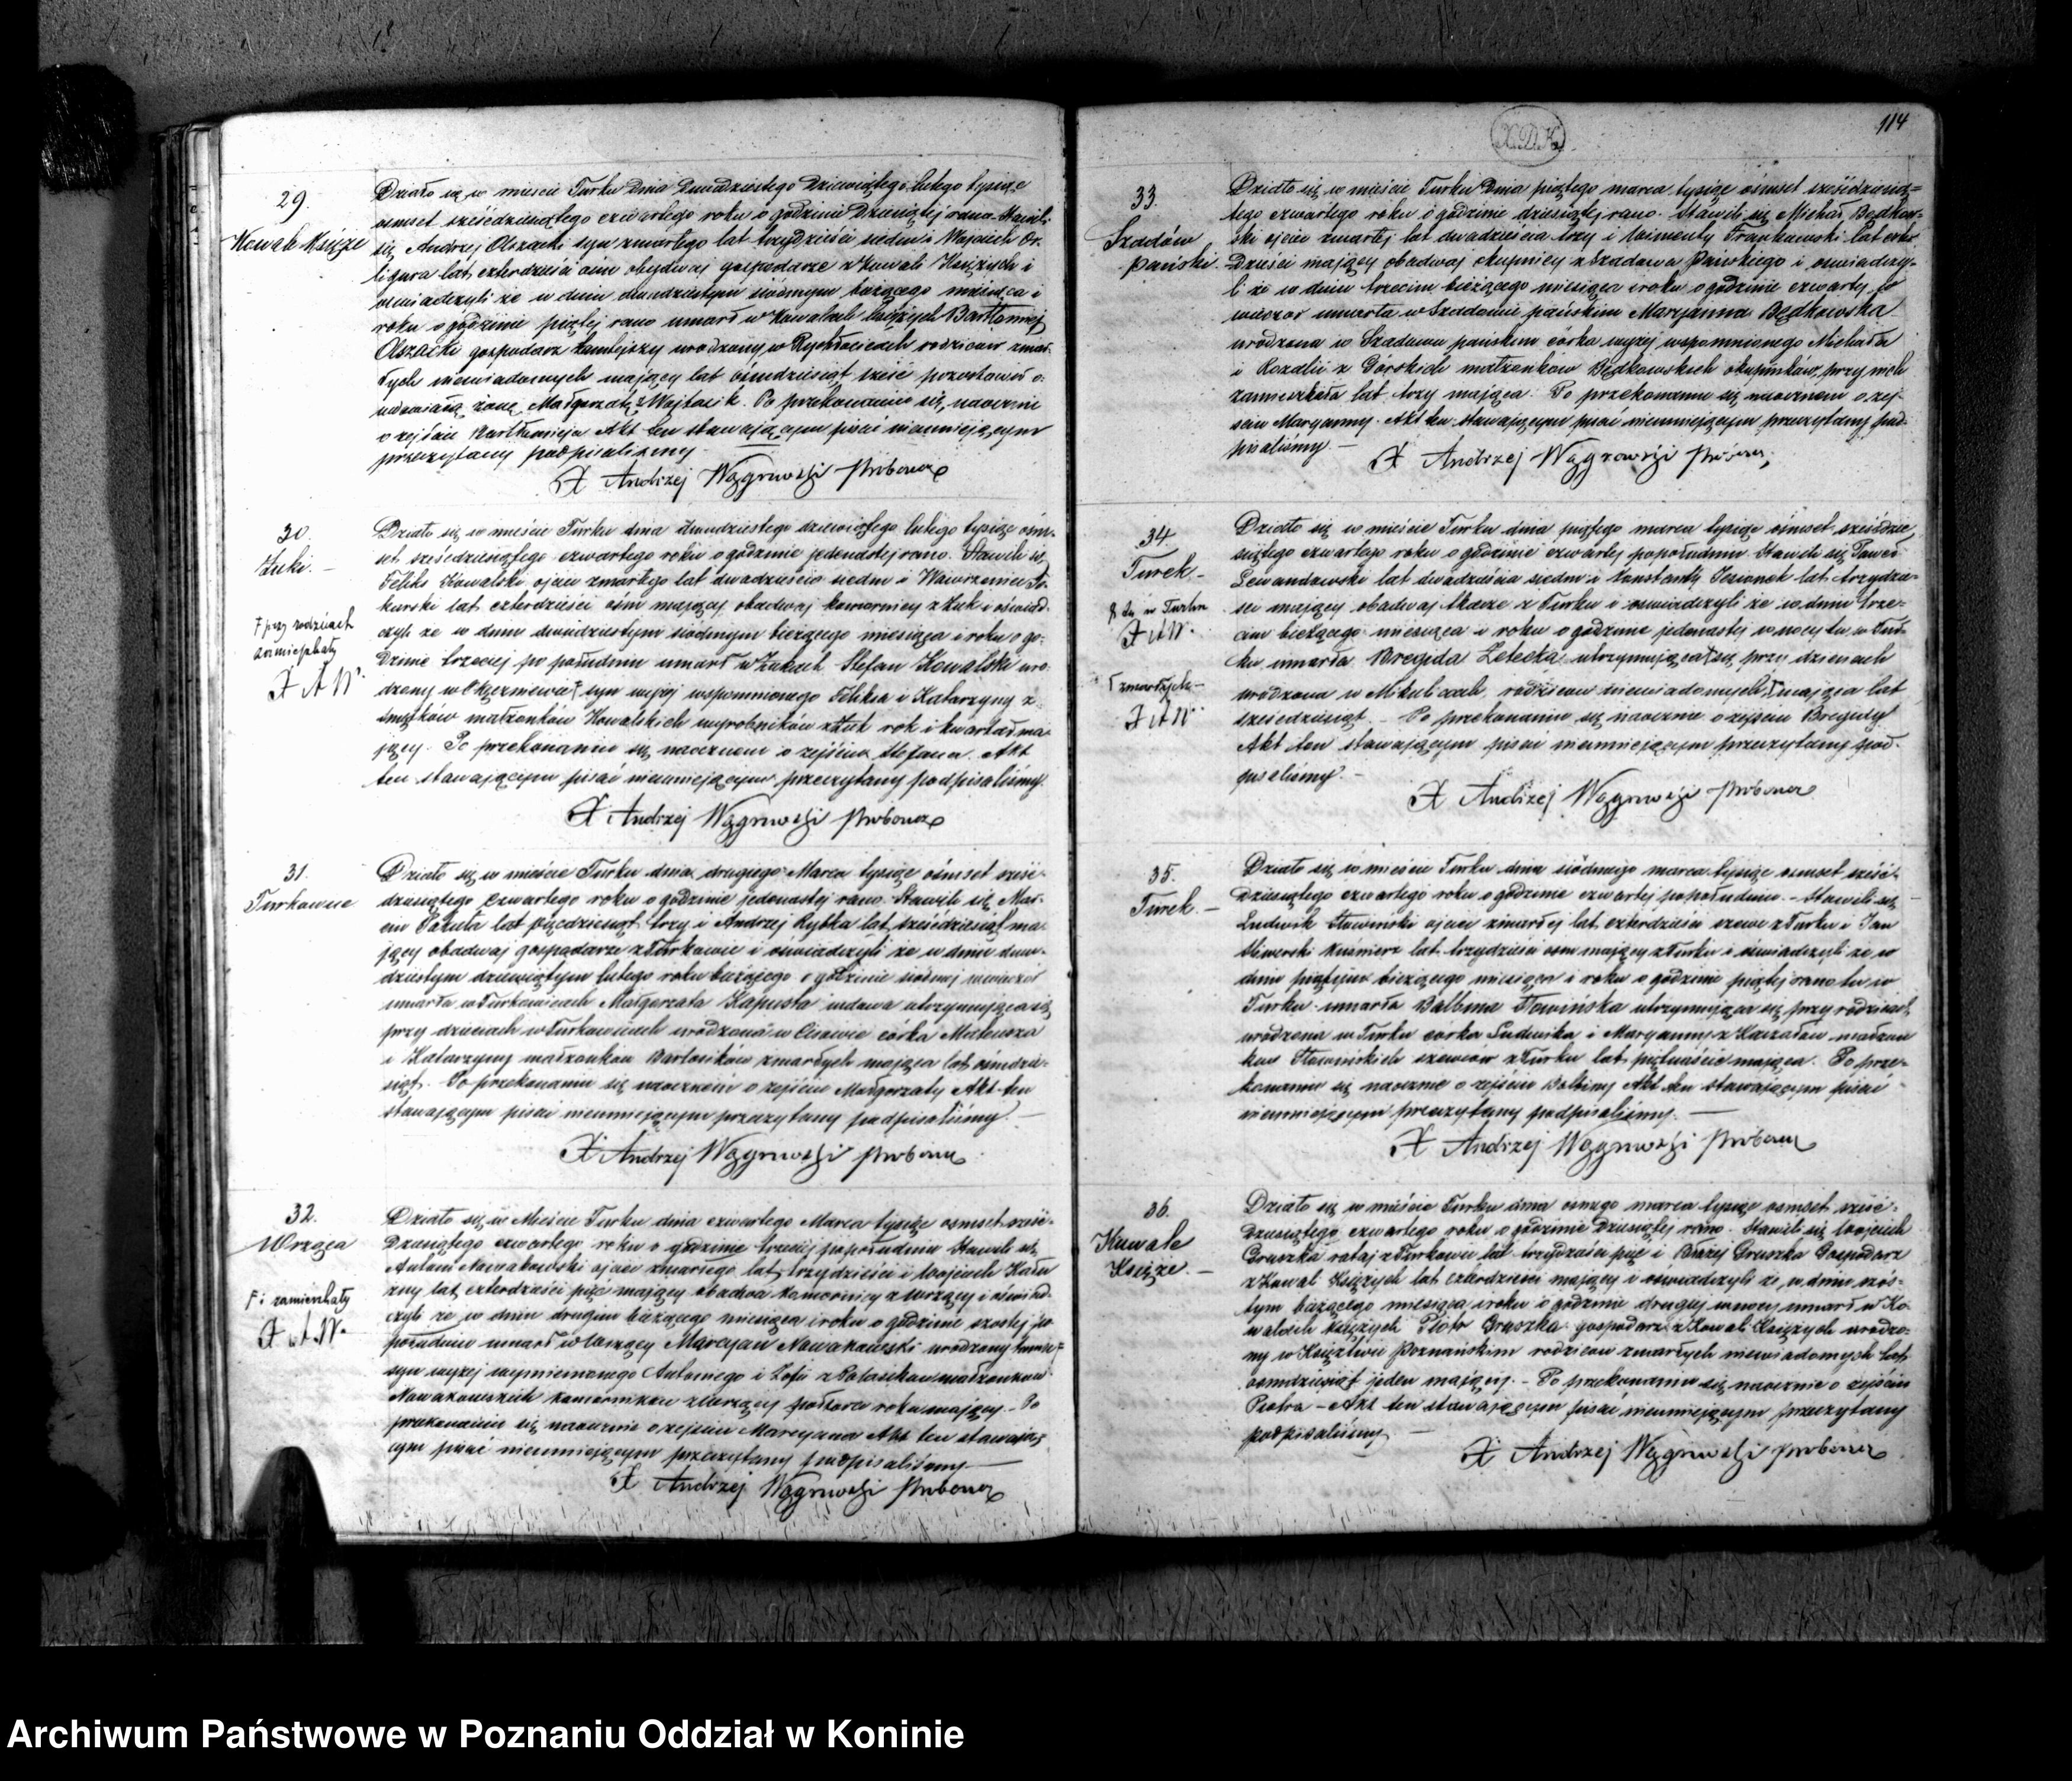 29.
Kowale Księże
Działo się w mieście Turku dnia dwudziestego dziewiątego lutego tysiąc
osmset sześćdziesiątego czwartego roku o godzinie dziesiątej rano. Stawili
się Andrzej Olszacki syn zmarłego lat trzydzieści siedm i Wojciech
lat czterdzieści obydwaj gospodarze z Kowali Księżych i
oświadczyli że w dniu dwudziestym siódmym bieżącego miesiąca i
roku o godzinie piątej rano umarł w Kowalach księżych Bartłomiej
Olszacki gospodarz tamtejszy urodzony w Rychłocicach rodziców zmar-
łych niewiadomych mający lat ośmdziesiąt sześć pozostawił o-
wdowiałą żonę Małgorzatę z Wojtasik. Po przekonaniu się naocznie
o zejściu Bartłomieja Akt ten stawającym pisać nieumiejącym
przeczytany podpisaliśmy
X Andrzej Węgrowski Proboszcz
30.
Żuki. –
† przy rodzicach
zamieszkały
X A W.
Działo się w mieście Turku dnia dwudziestego dziewiątego lutego tysiąc ośm-
set sześćdziesiątego czwartego roku o godzinie jedenastej rano. Stawili się
Feliks Kowalski ojciec zmarłego lat dwadzieścia siedm i Wawrzeniec To-
karski lat czterdzieści ośm mający obadwaj komornicy z Żuk i oświad-
czyli że w dniu dwudziestym siódmym bieżącego miesiąca i roku o go-
dzinie trzeciej po południu umarł w Żukach Stefan Kowalski uro-
dzony w † syn wyżej wspomnionego Feliksa i Katarzyny z
małżonków Kowalskich wyrobników z Żuk rok i kwartał ma-
jący. Po przekonaniu się naocznem o zejściu Stefana. Akt
ten stawającym pisać nieumiejącym przeczytany podpisaliśmy.
X Andrzej Węgrowski Proboszcz
31.
Turkowice
Działo się w mieście Turku dnia drugiego Marca tysiąc ośmset sześć-
dziesiątego czwartego roku o godzinie jedenastej rano. Stawili się Mar-
cin Pakuła lat pięćdziesiąt trzy i Andrzej Rybka lat sześćdziesiąt ma-
jący obadwaj gospodarze z Turkowic i oświadczyli że w dniu dwu-
dziestym dziewiątym lutego roku bieżącego o godzinie siódmej wieczór
umarła w Turkowicach Małgorzata Kapusta wdowa utrzymująca się
przy dzieciach w Turkowicach urodzona w Cisowie córka Mateusza
i Katarzyny małżonków Bartosików zmarłych mająca lat ośmdzie-
siąt. Po przekonaniu się naocznem o zejściu Małgorzaty Akt ten
stawającym pisać nieumiejącym przeczytany podpisaliśmy. –
X Andrzej Węgrowski Proboszcz
32.
Wrząca
† i zamieszkały
X A W.
Działo się w Mieście Turku dnia czwartego Marca tysiąc osmset sześć-
dziesiątego czwartego roku o godzinie trzeciej popołudniu Stawili się
Antoni Nowakowski ojciec zmarłego lat trzydzieści i Wojciech
lat czterdzieści pięć mający obadwa komornicy z Wrzący i oświad-
czyli że w dniu drugim bieżącego miesiąca i roku o godzinie szóstej po
południu umarł w Wrzący Marcyan Nowakowski urodzony tamże †
syn wyżej wymienionego Antoniego i Zofii z Ratasików małżonków
Nowakowskich komorników z Wrzący półtora roku mający. – Po
przekonaniu się naocznie o zejściu Marcyana Akt ten stawają-
cym pisać nieumiejącym przeczytany podpisaliśmy. –
X Andrzej Węgrowski Proboszcz
X.D.K.
114
33
Szadów
Pański.
Działo się w mieście Turku dnia piątego marca tysiąc ośmset sześćdziesią-
tego czwartego roku o godzinie dziesiątej rano. Stawili się Michał Będkow-
ski ojciec zmarłej lat dwadzieścia trzy i Klimenty Frankowski lat czter-
dzieści mający obadwaj okupnicy z Szadowa Pańskiego i oświadczy-
li że w dniu trzecim bieżącego miesiąca i roku o godzinie czwartej w
wieczór umarła w Szadowie pańskim Maryanna Będkowska
urodzona w Szadowie pańskim córka wyżej wspomnionego Michała
i Rozalii z Górskich małżonków Będkowskich okupników, przy nich
zamieszkała lat trzy mająca. Po przekonaniu się naocznem o zej-
ściu Maryanny. Akt ten stawającym pisać nieumiejącym przeczytany pod-
pisaliśmy –
X Andrzej Węgrowski Proboszcz
34
Turek –
X A W.
† zmarłych –
X A W.
Działo się w mieście Turku dnia piątego marca tysiąc ośmset sześćdzie-
siątego czwartego roku o godzinie czwartej popołudniu. Stawili się Paweł
Lewandowski lat dwadzieścia siedm i Konstanty Jesionek lat trzydzie-
ści mający obadwaj tkacze z Turku i oświadczyli że w dniu trze-
cim bieżącego miesiąca i roku o godzinie jedenastej w nocy tu w Tur-
ku umarła Bregida Zetecka utrzymująca się przy dzieciach
urodzona w Mikulicach, rodziców niewiadomych † mająca lat
sześćdziesiąt. – Po przekonaniu się naocznie o zejściu Bregidy
Akt ten stawającym pisać nieumiejącym przeczytany pod-
pisaliśmy. –
X Andrzej Węgrowski Proboszcz
35.
Turek. –
Działo się w mieście Turku dnia siódmego marca tysiąc osmset sześć-
dziesiątego czwartego roku o godzinie czwartej popołudniu. – Stawili się
Ludwik Sławiński ojciec zmarłej lat czterdzieści szewc z Turku i Jan
kuśnierz lat trzydzieści osm mający z Turku i oświadczyli że w
dniu piątym bieżącego miesiąca i roku o godzinie piątej rano tu w
Turku umarła Balbina Sławińska utrzymująca się przy rodzicach
urodzona w Turku córka Ludwika i Maryanny z małżon-
ków Sławińskich szewców z Turku lat piętnaście mająca. Po prze-
konaniu się naocznie o zejściu Balbiny Akt ten stawającym pisać
nieumiejącym przeczytany podpisaliśmy. –
X Andrzej Węgrowski Proboszcz
36.
Kowale
Księże. –
Działo się w mieście Turku dnia osmego marca tysiąc osmset sześć-
dziesiątego czwartego roku o godzinie dziesiątej rano. Stawili się Wojciech
Gruszka rataj z Turkowic lat trzydzieści pięć i Błażej Gruszka Gospodarz
z Kowali Księżych lat czterdzieści mający i oświadczyli że w dniu szós-
tym bieżącego miesiąca i roku o godzinie drugiej w nocy umarł w Ko-
walach księżych Piotr Gruszka gospodarz z Kowali Księżych urodzo-
ny w Księztwie Poznańskim rodziców zmarłych niewiadomych lat
osmdziesiąt jeden mający. – Po przekonaniu się naocznie o zejściu
Piotra – Akt ten stawającym pisać nieumiejącym przeczytany
podpisaliśmy –
X Andrzej Węgrowski Proboszcz
Archiwum Państwowe w Poznaniu Oddział w Koninie